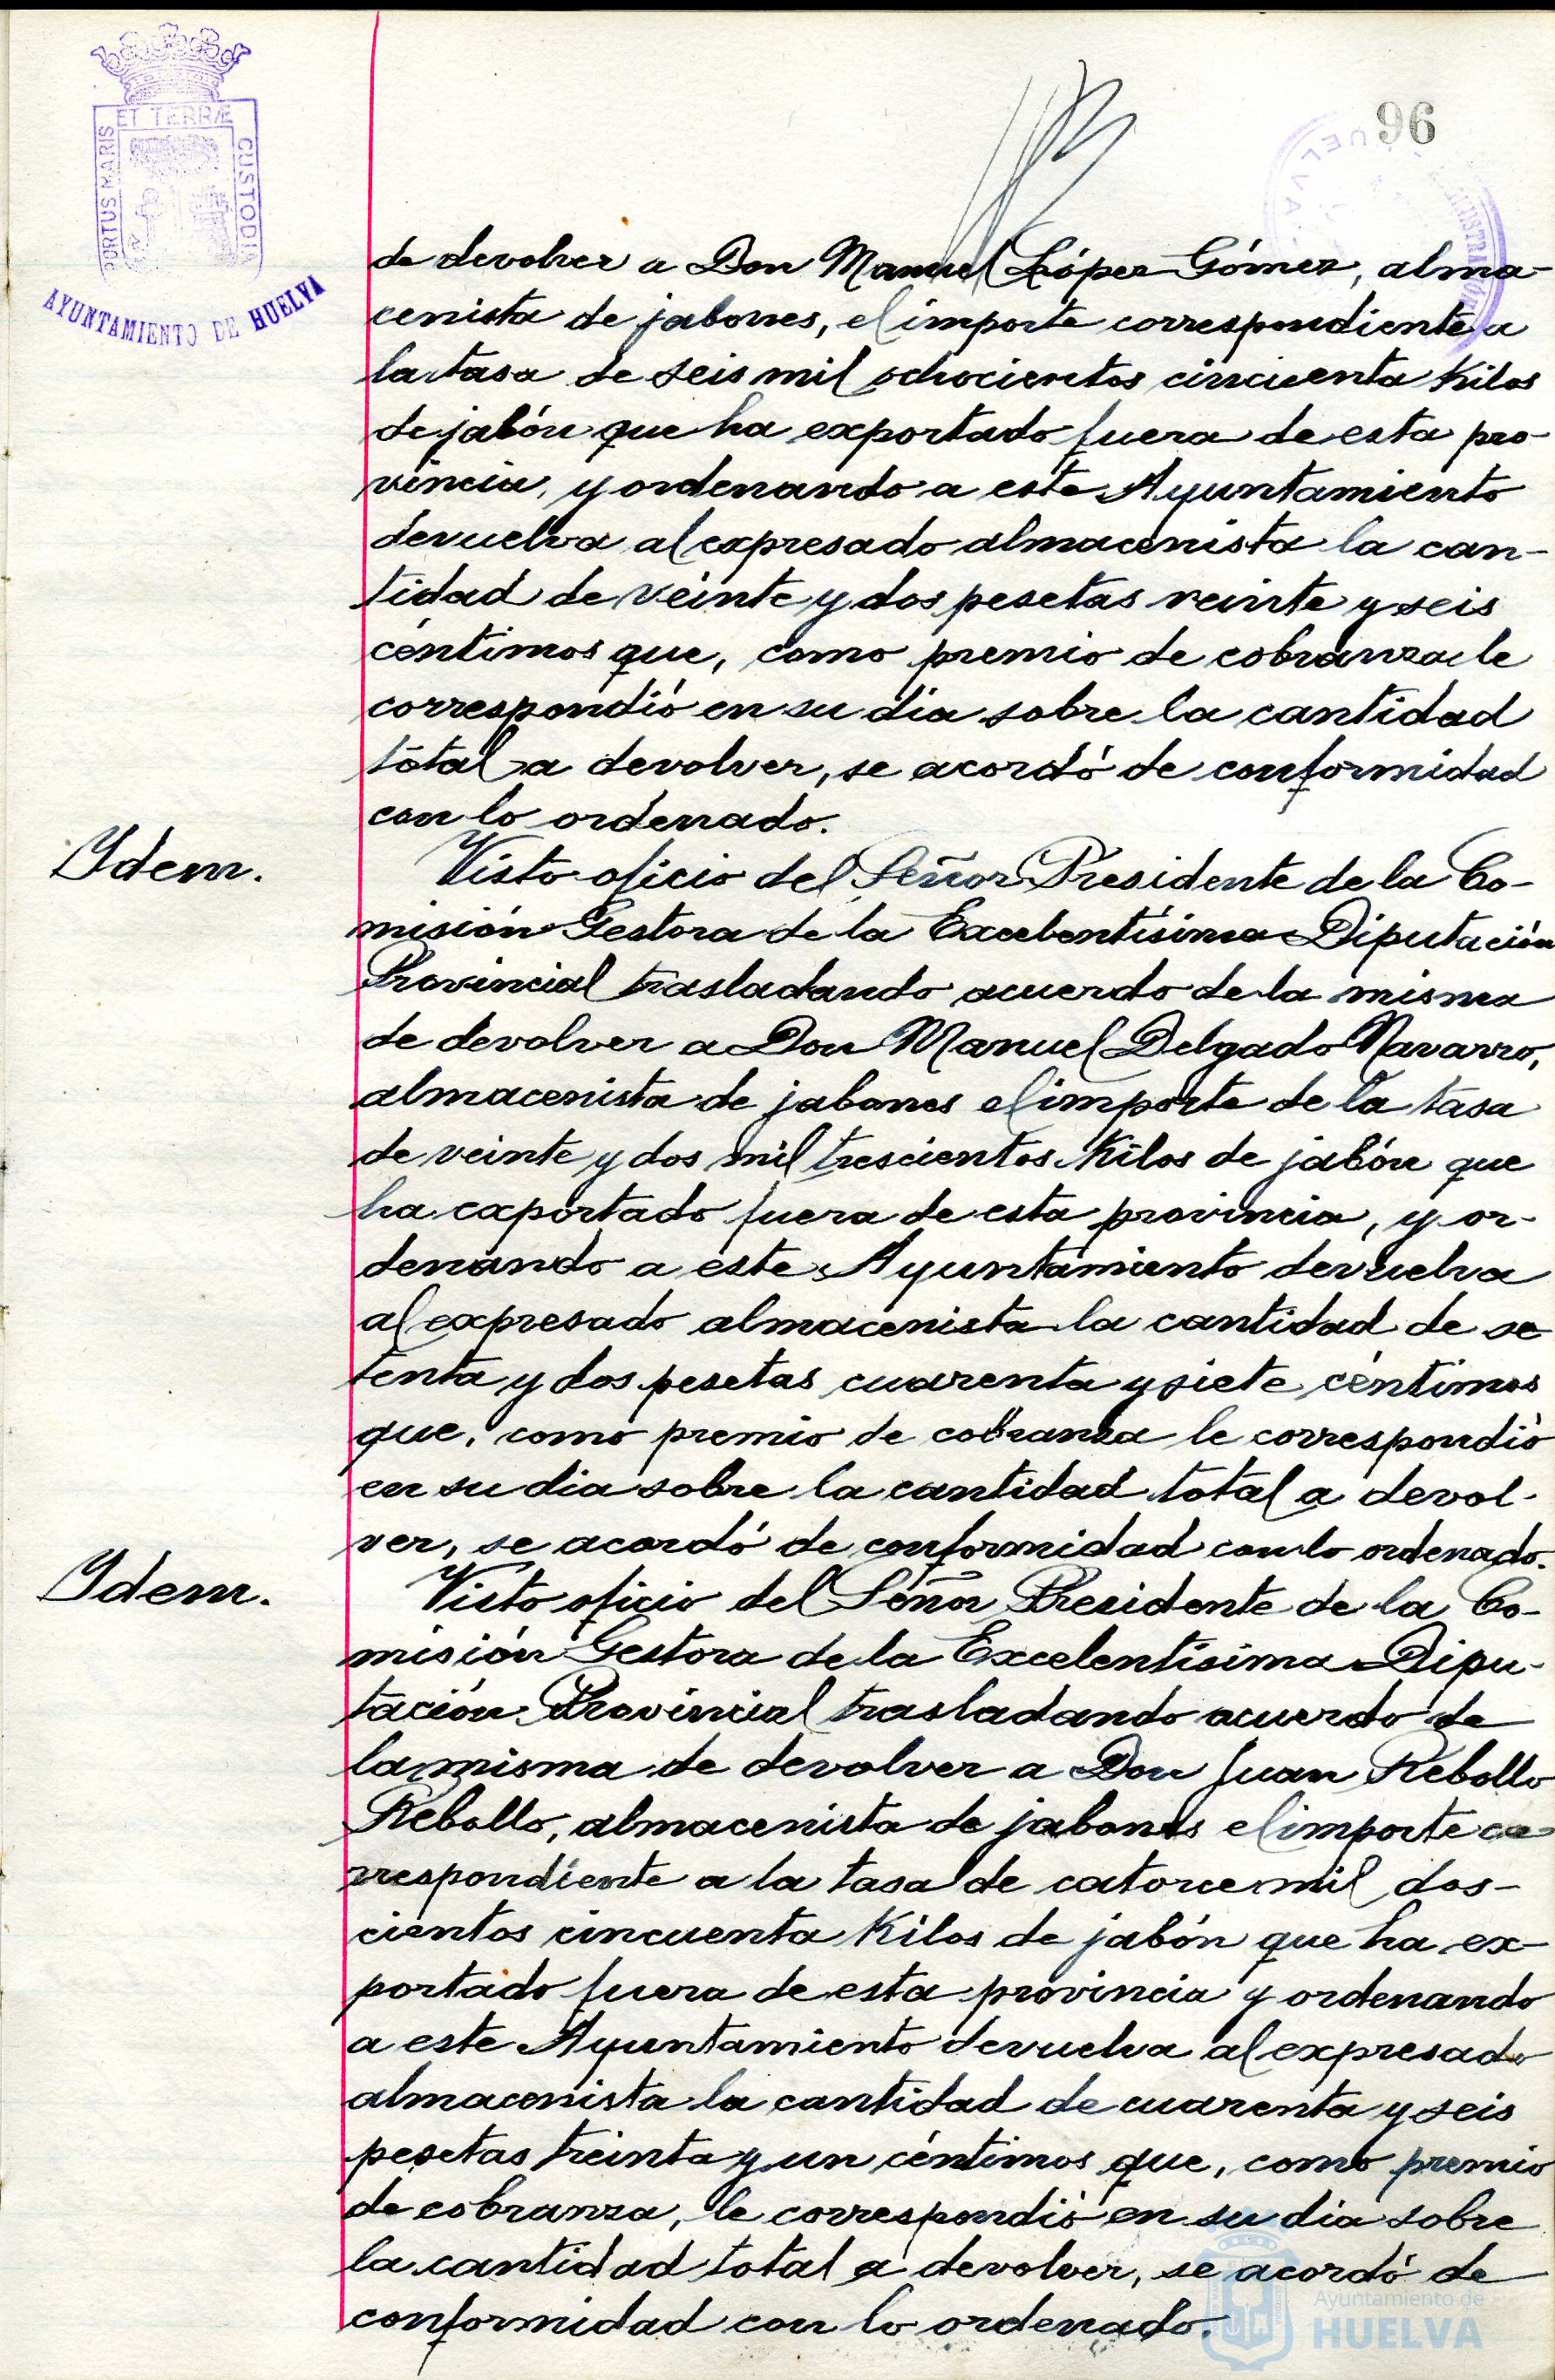 96
ET TERRÆ
PORTUS MARIS
CUSTODIA
AYUNTAMIENTO DE HUELVA
de devolver a Don Manuel López Gómez, alma-
cenista de jabones, el importe correspondiente a
la tasa de seis mil ochocientos cincuenta Kilos
de jabón que ha exportado fuera de esta pro-
vincia, y ordenando a este Ayuntamiento
devuelva al expresado almacenista la can-
tidad de veinte y dos pesetas veinte y seis
céntimos que, como premio de cobranza le
correspondió en su dia sobre la cantidad
total a devolver, se acordó de conformidad
con lo ordenado.
Ydem.
Visto oficio del Señor Presidente de la Co-
misión Gestora de la Excelentísima Diputación
Provincial trasladando acuerdo de la misma
de devolver a Don Manuel Delgado Navarro,
almacenista de jabones el importe de la tasa
de veinte y dos mil trescientos Kilos de jabón que
ha exportado fuera de esta provincia, y or-
denando a este Ayuntamiento devuelva
al expresado almacenista la cantidad de se
tenta y dos pesetas cuarenta y siete céntimos
que, como premio de cobranza le correspondió
en su dia sobre la cantidad total a devol-
ver, se acordó de conformidad con lo ordenado.
Ydem.
Visto oficio del Señor Presidente de la Co-
misión Gestora de la Excelentísima Dipu-
tación Provincial trasladando acuerdo de
la misma de devolver a Don Juan Rebollo
Rebollo, almacenista de jabones el importe co
rrespondiente a la tasa de catorce mil dos-
cientos cincuenta Kilos de jabón que ha ex-
portado fuera de esta provincia y ordenando
a este Ayuntamiento devuelva al expresado
almacenista la cantidad de cuarenta y seis
pesetas treinta y un céntimos que, como premio
de cobranza, le correspondió en su dia sobre
la cantidad total a devolver, se acordó de
conformidad con lo ordenado.
Ayuntamiento de
HUELVA